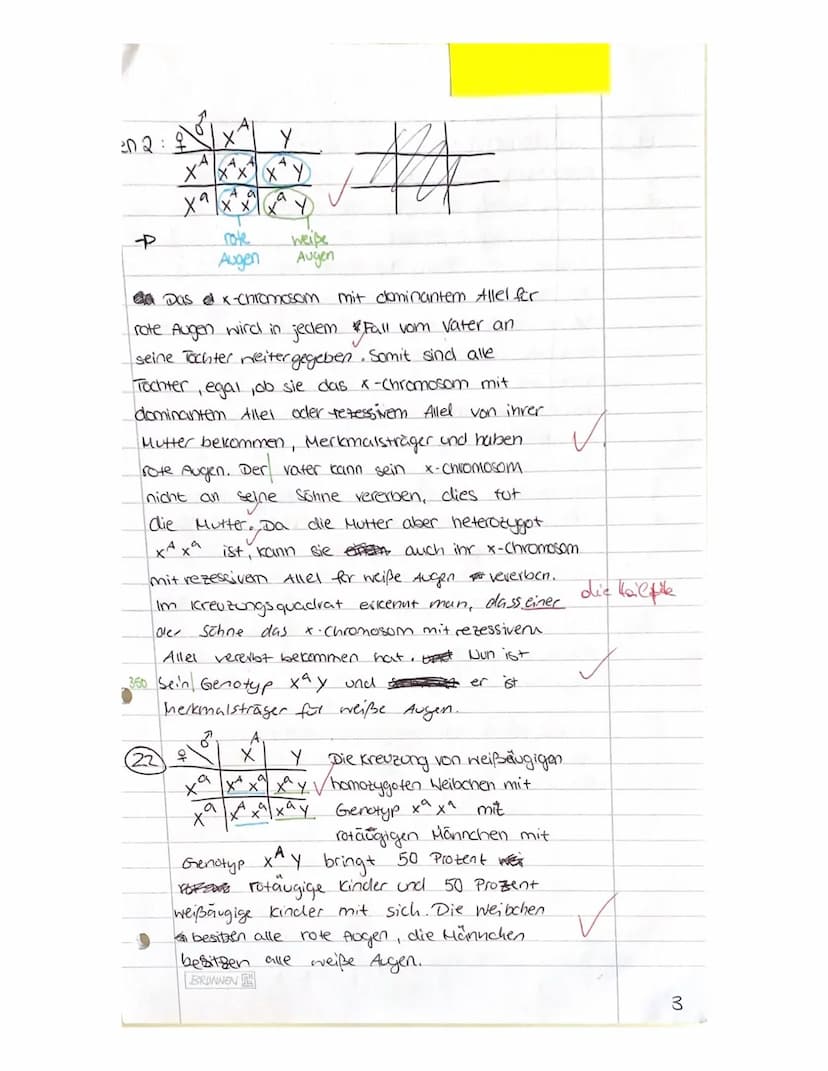 en 2: ♀ ♂ X^A Y
X^A X^A X^A X^A Y
X^a X^A X^a X^a Y
rote weiße
Augen Augen
Das x-Chromosom mit dominantem Allel für
rote Augen wird in jedem Fall vom Vater an
seine Töchter weitergegeben. Somit sind alle
Töchter, egal, ob sie das x-Chromosom mit
dominantem Allel oder rezessivem Allel von ihrer
Mutter bekommen, Merkmalsträger und haben
rote Augen. Der Vater kann sein x-Chromosom
nicht an seine Söhne vererben, dies tut
die Mutter. Da die Mutter aber heterozygot
X^A X^a ist, kann sie auch ihr x-Chromosom
mit rezessivem Allel für weiße Augen vererben.
Im Kreuzungsquadrat erkennt man, dass einer die Hälfte
der Söhne das x-Chromosom mit rezessivem
Allel vererbt bekommen hat. Nun ist
350 Sein Genotyp X^a Y und er ist
Merkmalsträger für weiße Augen.
22 ♀ ♂ X^A Y Die Kreuzung von weißäugigen
X^a X^A X^a X^a Y homozygoten Weibchen mit
X^a X^A X^a X^a Y Genotyp X^a X^a mit
rotäugigen Männchen mit
Genotyp X^A Y bringt 50 Prozent
rotäugige Kinder und 50 Prozent
weißäugige Kinder mit sich. Die Weibchen
besitzen alle rote Augen, die Männchen
besitzen alle weiße Augen.
BRUNNEN
3